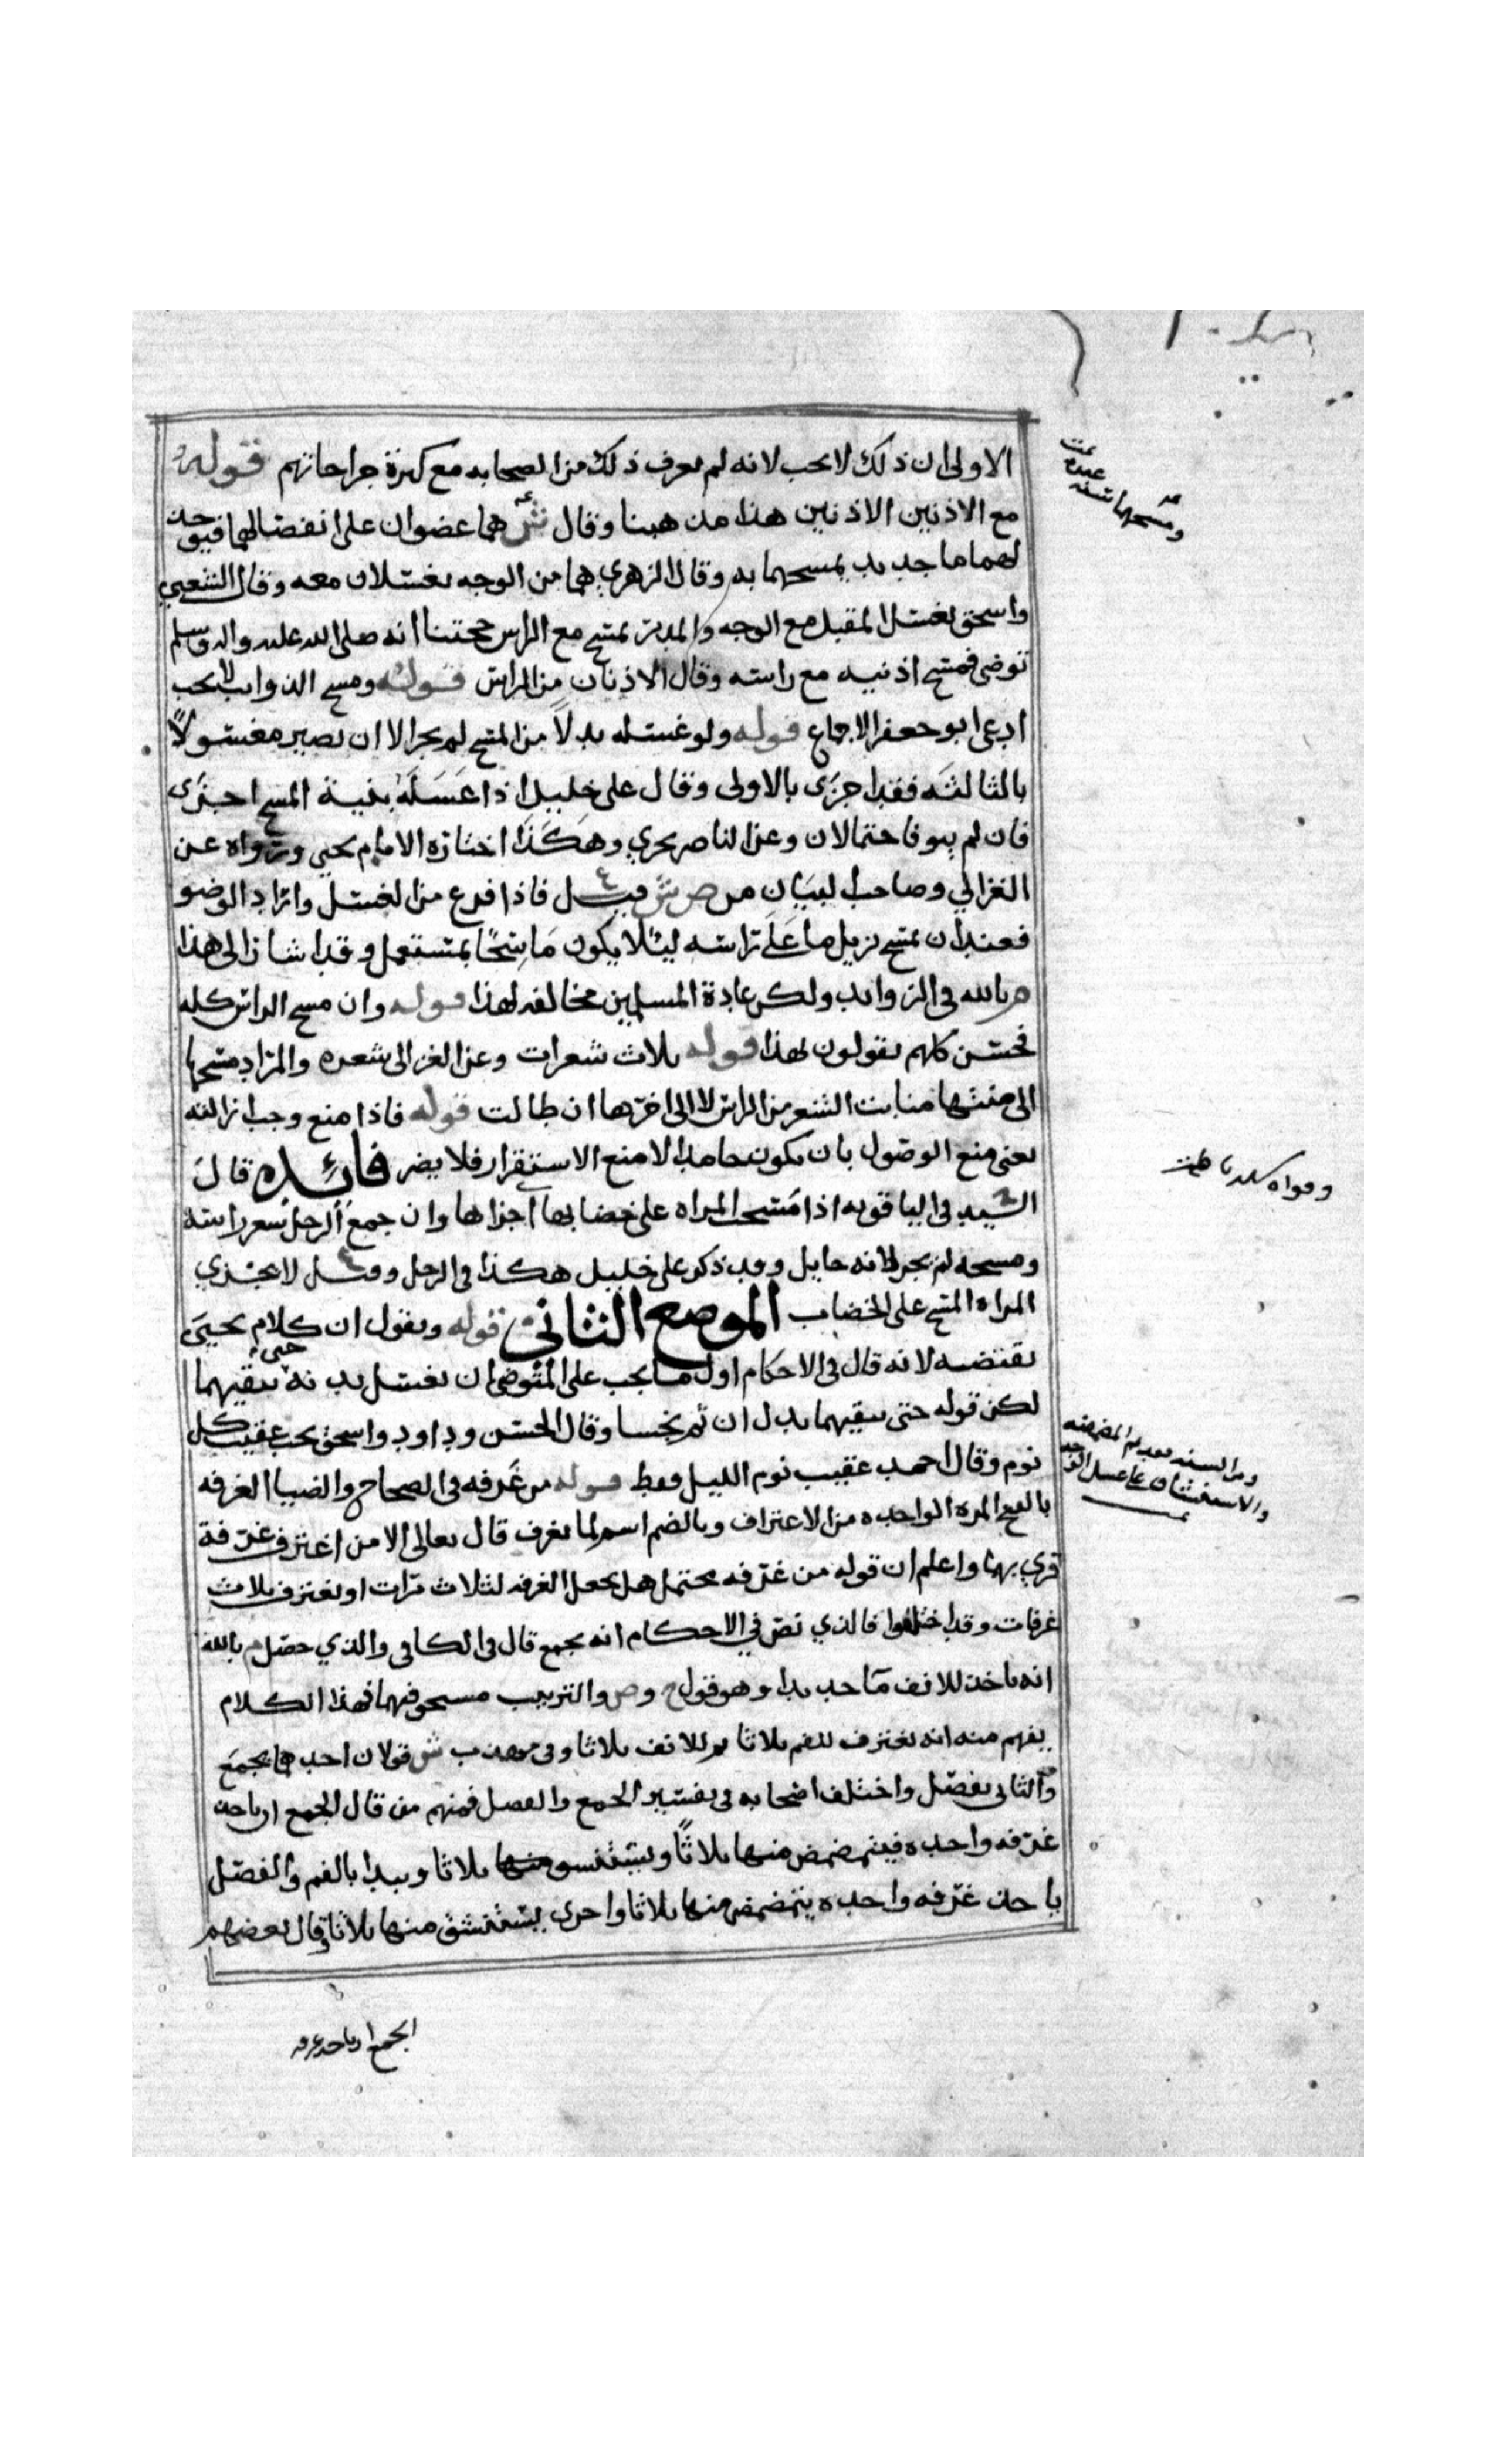 الاولى ان ذلك لا يجب لانه لم يعرف ذلك من الصحابه مع كثرة جراحاتهم قوله
مع الاذنين الاذنين هذا مذهبنا وقال ش هما عضوان على انفصالهما فيؤخذ
لهما ما جديد يمسحهما به وقال الزهري هما من الوجه يغسلان معه وقال الشعبي
واسحق يغسل المقبل مع الوجه والمدبر يمسح مع الراس حجتنا انه صلى الله عليه واله وسلم
توضى فمسح اذنيه مع راسه وقال الاذنان من الراس قوله ومسح الذوايب لا يجب
ادعى ابو جعفر الاجماع قوله ولو غسله بدلاً من المسح لم يجز الا ان يصير مغسولاً
بالثالثه فقد اجزى بالاولى وقال على خليل اذا غسله بنية المسح اجتزى
فان لم ينو فاحتمالان وعن الناصر يجزي وهكذا اختاره الامام يحيى ورواه عن
الغزالي وصاحب البيان من صش قيل فاذا فرغ من الغسل واراد الوضو
فعند ان يمسح يزيل ما على راسه ليئلا يكون ماسحًا بمستعمل وقد اشار الى هذا
م بالله في الزوايد ولكن عادة المسلمين مخالفه لهذا قوله وان مسح الراس كله
فحسن كلهم يقولون بهذا قوله ثلاث شعرات وعن الغزالى شعره والمراد مسحها
الى منتها منابت الشعر من الراس لا الى اخرها ان طالت قوله فاذا منع وجب ازالته
يعنى منع الوصول بان يكون جامدا لا منع الاستقرار فلا يضر فائده قال
السيد في الياقوته اذا مسحت المراه على خضابها اجزاها وان جمع الرجل شعر راسه
ومسحه لم يجز لانه حايل وقد ذكر على خليل هكذا في الرجل وقيل لا يجزي
المراه المسح على الخضاب الموضع الثاني قوله ونقول ان كلام يحيى
يقتضيه لانه قال في الاحكام اول ما يجب على المتوضى ان يغسل يديه حتى ينقيهما
لكن قوله حتى ينقيهما يدل ان ثم نجسا وقال الحسن وداود واسحق يجب عقيب كل
نوم وقال احمد عقيب نوم الليل فقط قوله من غرفه في الصحاح والضيا الغرفه
بالفتح المره الواحده من الاغتراف وبالضم اسم لما يغرف قال تعالى الا من اغترف غرفة
قري بهما واعلم ان قوله من غرفه محتمل هل يجعل الغرفه لثلاث مرات او يغترف ثلاث
غرفات وقد اختلفوا فالذي نص في الاحكام انه يجمع قال في الكافي والذي حصل م بالله
انه ياخذ للانف ماً جديدا وهو قول ح وص والترتيب مستحق فيهما فهذا الكلام
يفهم منه انه يغترف للفم ثلاثا ثم للانف ثلاثا وفى مهذب ش قولان احدهما يجمع
والثاني يفصل واختلف اصحابه في تفسير الجمع والفصل فمنهم من قال الجمع ان ياخذ
غرفه واحده فيتمضمض منها ثلاثًا ويستنشق منها ثلاثا ويبدا بالفم والفصل
ياخذ غرفه واحده يتمضمض منها ثلاثا واخرى يستنشق منها ثلاثا وقال بعضهم
ومسحهما سنه
ومن السنه تقديم المضمضه
والاستنشاق على غسل الوجه
الجمع ان ياخذ غرفه